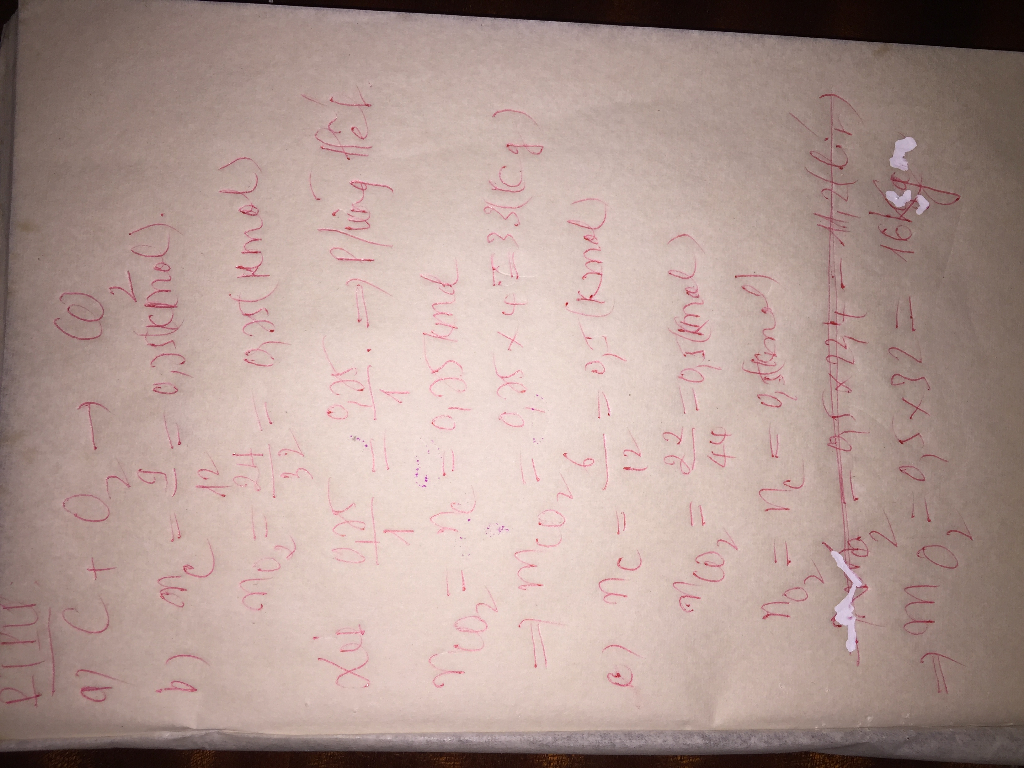 a) C + O2 → CO2
b) nC = 9/12 = 0,75(kmol).
nO2 = 24/32 = 0,75(kmol)
Xét 0,75/1 = 0,75/1. → P/ứng hết
nCO2 = nC = 0,75 kmol
→ mCO2 = 0,75 x 44 = 33(Kg)
c) nC = 6/12 = 0,5(kmol)
nCO2 = 22/44 = 0,5(kmol)
nO2 = nC = 0,5(kmol)
= 0,5 x 22,4 = 11,2(lít)
→ mO2 = 0,5 x 32 = 16kg